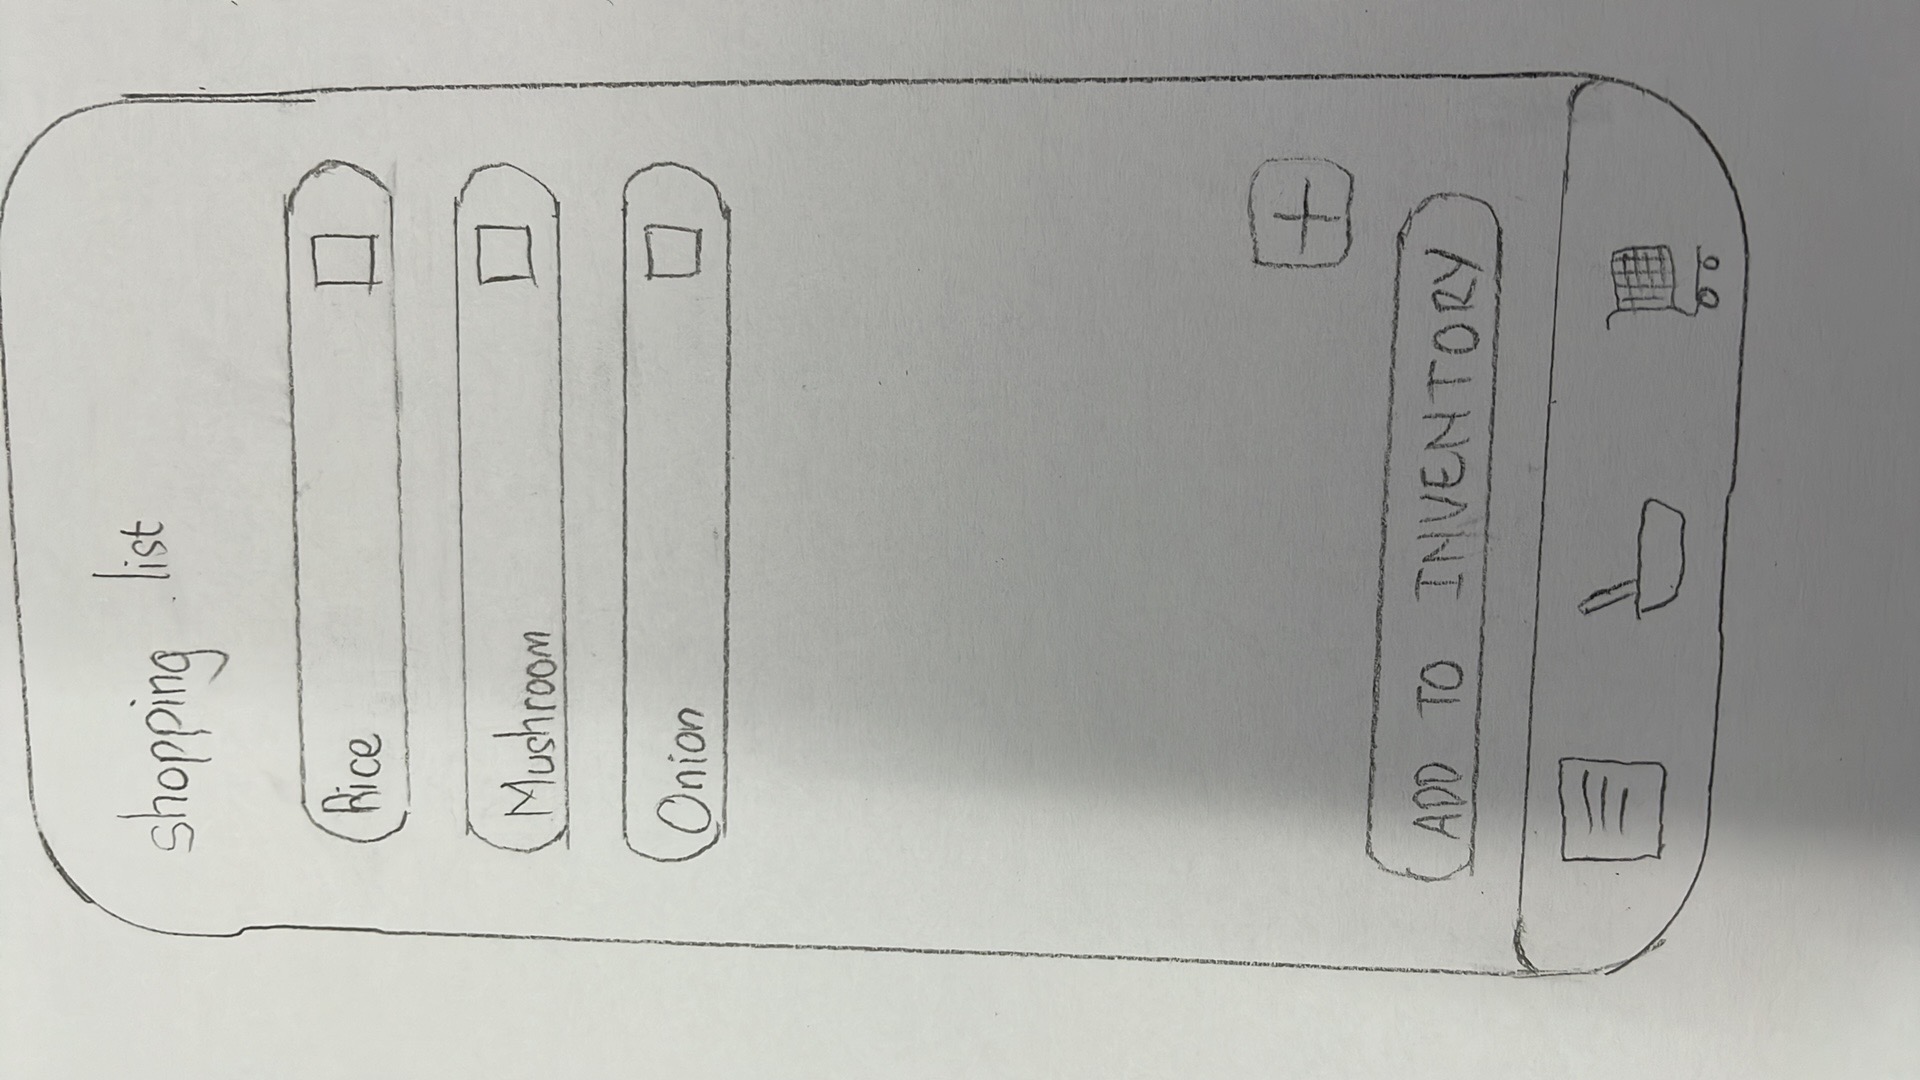 shopping list
Rice
Mushroom
Onion
ADD TO INVENTORY